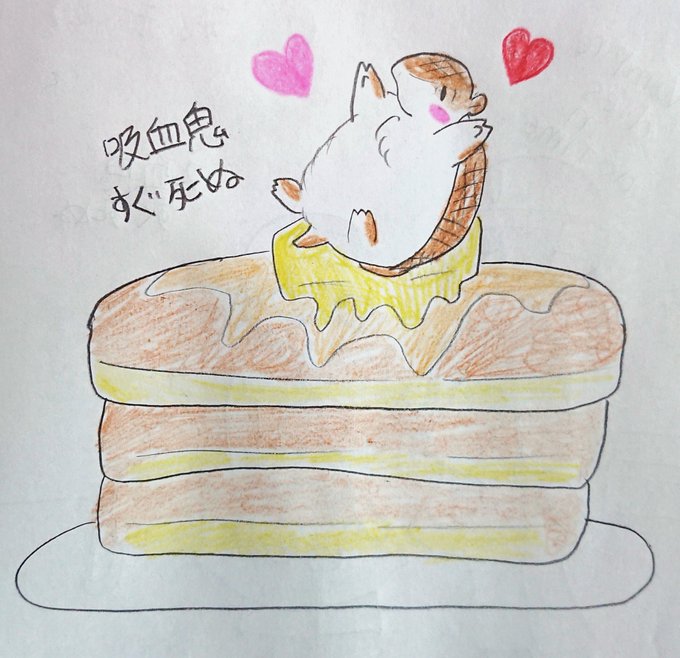 吸血鬼
すぐ死ぬ